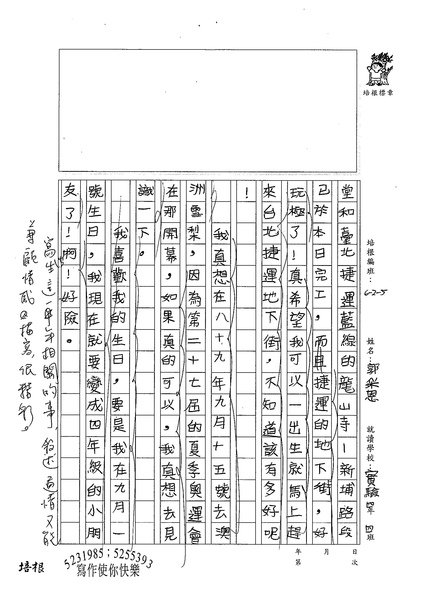 培根標章
培根編班：6-2-5
姓名：郭樂恩
就讀學校：實驗 四年 四班
堂和臺北捷運藍線的龍山寺─新埔路段
已於本日完工，而且捷運的地下街，好
玩極了！真希望我可以一出生就馬上趕
來台北捷運地下街，不知道該有多好呢
！
我真想在八十九年九月十五號去澳
洲雪梨，因為第二十七屆的夏季奧運會
在那開幕，如果真的可以，我真想去見
識一下。
我喜歡我的生日，要是我在九月一
號生日，我現在就要變成四年級的小朋
友了！啊！好險。
年 月 日
第 次
寫出這一年中相關的事，敘述事情又能
兼顧情感的描寫，很精彩。
培根
5231985；5255393
寫作使你快樂